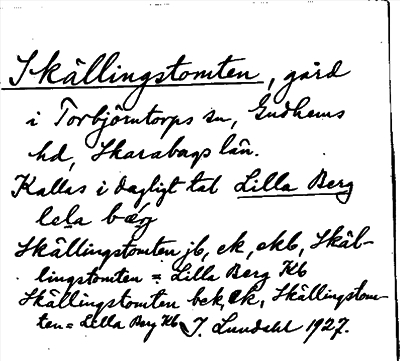 Skällingstomten, gård
i Torbjörntorps sn, Gudhems
hd, Skarabags län.
Kallas i dagligt tal Lilla Berg
lela bærg
Skällingstomten jb, ek, ekb, Skäl-
lingstomten = Lilla Berg Kb
Skällingstomten bek, ek, Skällingstom-
ten = Lilla Berg Kb J. Lundahl 1927.